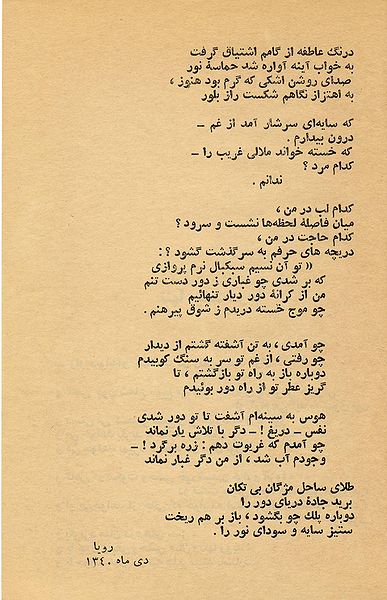 درنگ عاطفه از گامم اشتیاق گرفت
به خواب آینه آواره شد حماسهٔ نور
صدای روشن اشکی که گرم بود هنوز ،
به اهتزاز نگاهم شکست راز بلور
که سایه‌ای سرشار آمد از غم –
درون بیدارم .
که خسته خواند ملالی غریب را –
کدام مرد ؟
ندانم .
کدام لب در من ،
میان فاصلهٔ لحظه‌ها نشست و سرود ؟
کدام حاجت در من ،
دریچه های حرفم به سرگذشت گشود ؟ :
« تو آن نسیم سبکبال نرم پروازی
که بر شدی چو غباری ز دور دست تنم
من از کرانهٔ دور دیار تنهائیم
چو موج خسته دریدم ز شوق پیرهنم .
چو آمدی ، به تن آشفته گشتم از دیدار
چو رفتی ، از غم تو سر به سنگ کوبیدم
دوباره باز به راه تو بازگشتم ، تا
گریز عطر تو از راه دور بوئیدم
هوس به سینه‌ام آشفت تا تو دور شدی
نفس – دریغ ! – دگر با تلاش یار نماند
چو آمدم که غریوت دهم : زره برگرد ! –
وجودم آب شد ، از من دگر غبار نماند
طلای ساحل مژگان بی تکان
برید جادهٔ دریای دور را
دوباره پلك چو بگشود ، باز بر هم ریخت
ستیز سایه و سودای نور را .
رویا
دی ماه ۱۳۴۰